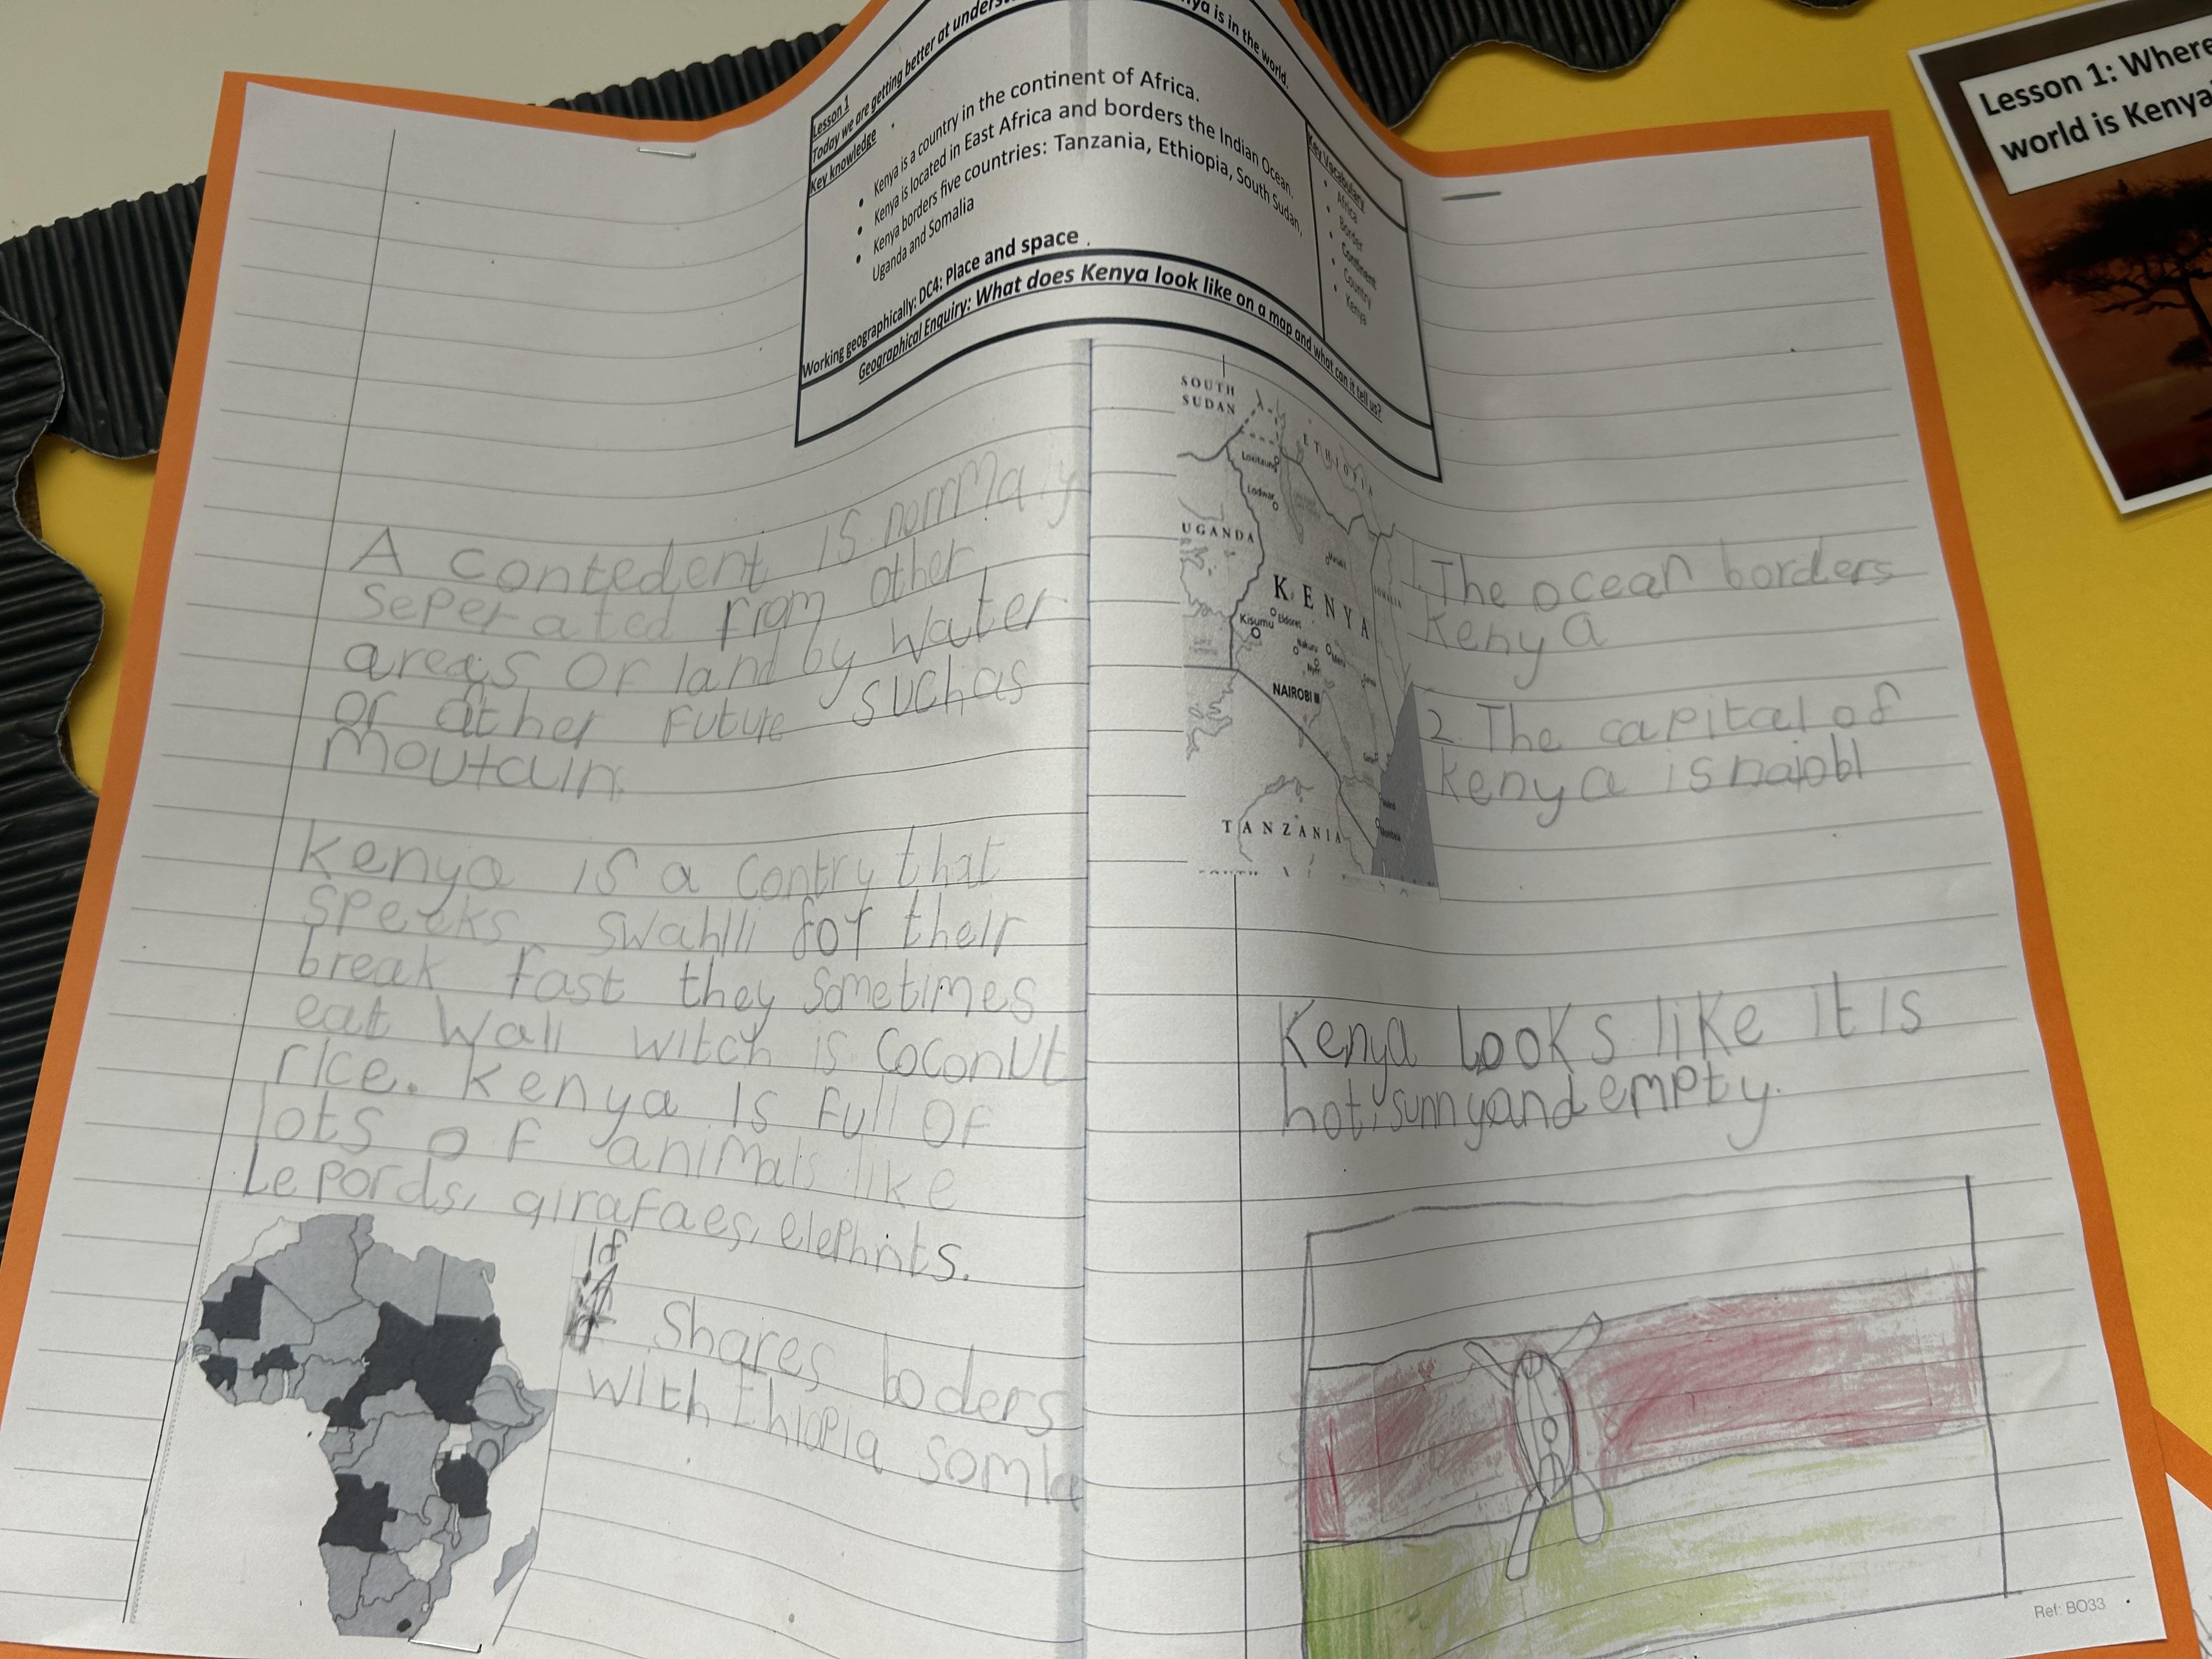 Lesson 1
Today we are getting better at underst
nya is in the world.
Key knowledge
Kenya is a country in the continent of Africa.
Kenya is located in East Africa and borders the Indian Ocean.
Kenya borders five countries: Tanzania, Ethiopia, South Sudan,
Uganda and Somalia
Key Vocabulary
Africa
Border
Continent
Country
Kenya
Working geographically: DC4: Place and space
Geographical Enquiry: What does Kenya look like on a map and what can it tell us?
A contedent is normaly
seperated from other
areas of land by water
or other future such as
moutain.
Kenya is a contry that
speeks swahili for their
break fast they sometimes
eat Wali witch is coconut
rice. Kenya is full of
lots of animals like
Lepords, girafaes, elephnts.
It
Shares boders
with Ethiopia somla
SOUTH
SUDAN
ETHIOPIA
Lokitaung
Lodwar
UGANDA
Marsabit
SOMALIA
KENYA
Kisumu
Eldoret
Nakuru
Meru
Nyeri
NAIROBI
Malindi
Mombasa
TANZANIA
1. The ocean borders
Kenya
2. The capital of
kenya is najobi
Kenya looks like it is
hot, sunny and empty.
Ref: BO33
Lesson 1: Where
world is Kenya